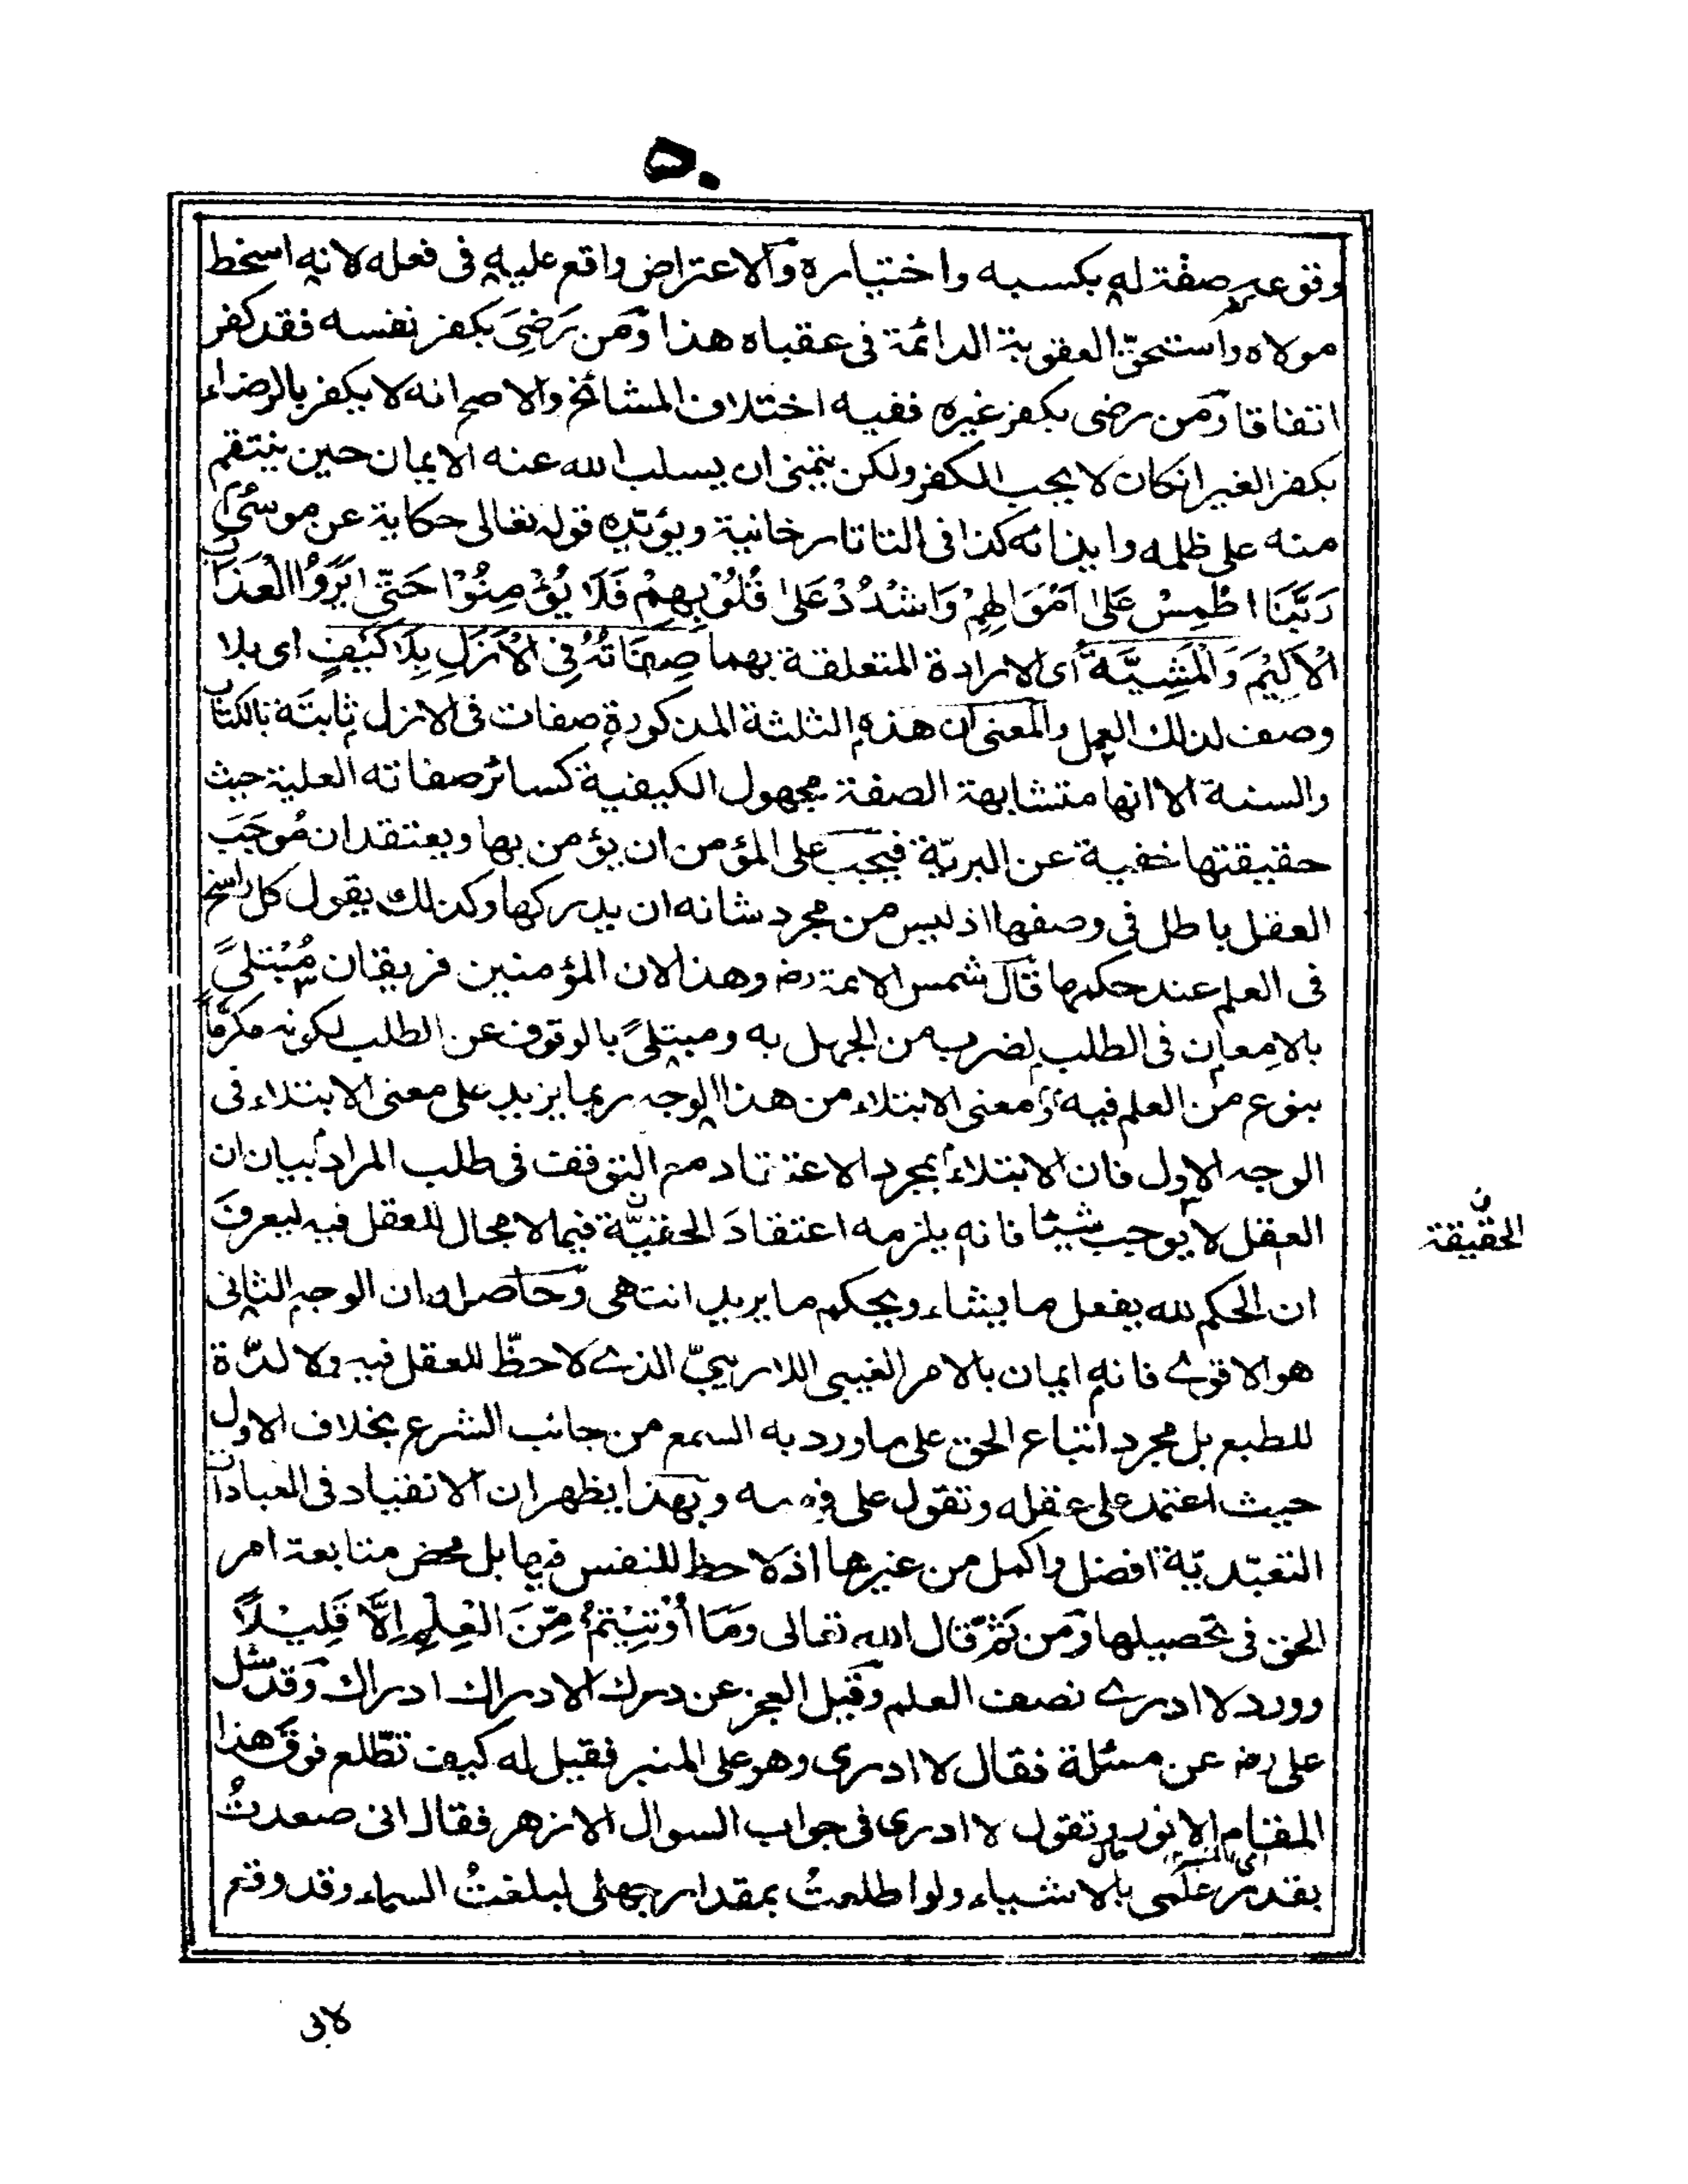 ٥٠
وقوعه صفة له بكسبه واختياره والاعتراض واقع عليه فى فعله لانه اسخط
مولاه واستحقّ العقوبة الدائمة فى عقباه هذا ومن رَضِىَ بكفر نفسه فقد كفر
اتفاقا ومن رضى بكفر غيره ففيه اختلاف المشائخ والاصح انه لا يكفر بالرضاء
بكفر الغير ان كان لا يحب الكفر ولكن يتمنى ان يسلب الله عنه الايمان حين ينتقم
منه على ظلمه وايذائه كذا فى التاتارخانية ويؤيّده قوله تعالى حكاية عن موسىٰ
رَبَّنَا اطْمِسْ عَلىٰ اَمْوَالِهِمْ وَاشْدُدْ عَلىٰ قُلُوْبِهِمْ فَلَا يُؤْمِنُوْا حَتّىٰ يَرَوُا الْعَذَابَ
الْاَلِيْمَ وَالْمَشِيَّةُ اى الارادة المتعلقة بهما صِفَاتُهُ فِى الْاَزَلِ بِلَا كَيْفٍ اى بلا
وصف لذلك العمل والمعنى ان هذه الثلثة المذكورة صفات فى الازل ثابتة بالكتاب
والسنة الا انها متشابهة الصفة مجهول الكيفية كسائر صفاته العلية حيث
حقيقتها خفية عن البريّة فيجب على المؤمن ان يؤمن بها ويعتقد ان مُوجَبَ
العقل باطل فى وصفها اذ ليس من مجرد شانه ان يدركها وكذلك يقول كل راسخ
فى العلم عند حكمها قال شمس الائمة رضـ وهذا لان المؤمنين فريقان مُبْتَلىً
بالامعان فى الطلب لضرب من الجهل به ومبتلىً بالوقوف عن الطلب لكونه مكرّماً
بنوع من العلم فيه ومعنى الابتلاء من هذا الوجه ربما يزيد على معنى الابتلاء فى
الوجه الاول فان الابتلاء بمجرد الاعتقاد مع التوقف فى طلب المراد بيان ان
العقل لا يوجب شيئا فانه يلزمه اعتقادَ الحقيّة فيما لا مجال للعقل فيه ليعرفَ
ن
الحقيقة
ان الحكم لله يفعل ما يشاء ويحكم ما يريد انتهى وحاصله ان الوجه الثانى
هو الاقوى فانه ايمان بالامر الغيبى اللاريبىّ الذى لا حظّ للعقل فيه ولا لذّة
للطبع بل مجرد اتباع الحق على ما ورد به السمع من جانب الشرع بخلاف الاول
حيث اعتمد على عقله وتقول على فهمه وبهذا يظهر ان الانقياد فى العبادات
التعبّديّة افضل واكمل من غيرها اذ لا حظ للنفس فيها بل محض متابعة امر
الحق فى تحصيلها ومن ثمّ قال الله تعالى وَمَا اُوْتِيْتُمْ مِّنَ الْعِلْمِ اِلَّا قَلِيْلًا
وورد لا ادرى نصف العلم وقيل العجز عن درك الادراك ادراك وقد سئل
على رضـ عن مسئلة فقال لا ادرى وهو على المنبر فقيل له كيف تطّلع فوق هذا
المقام الانور وتقول لا ادرى فى جواب السوال الازهر فقال انى صعدتُ
اى المنبر
بقدر علمى بالاشياء ولو اطلعتُ بمقدار جهلى لبلغتُ السماء وقد وقع